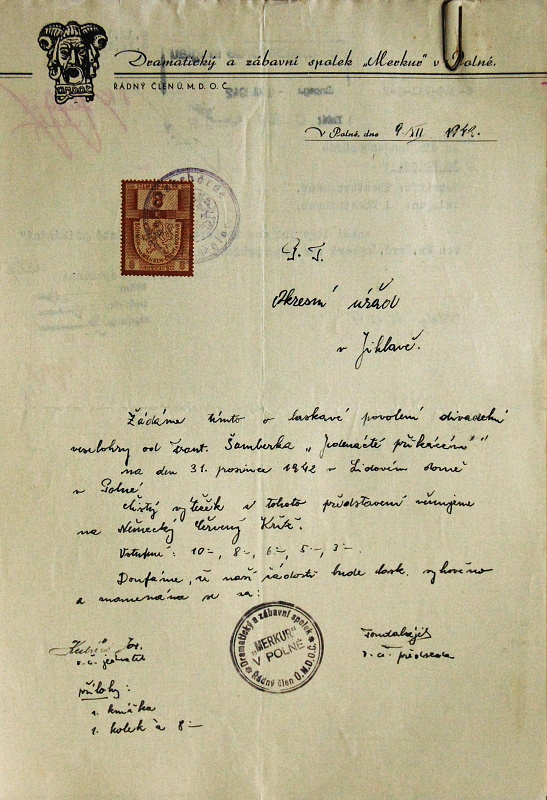 Dramatický a zábavní spolek „Merkur" v Polné.
ŘÁDNÝ ČLEN Ú. M. D. O. Č.
V Polné, dne 9./XII 1942.
P. T.
Okresní úřad
v Jihlavě.
Žádáme tímto o laskavé povolení divadelní
veselohry od Frant. Šamberka „Jedenácté přikázání"
na den 31. prosince 1942 v Lidovém domě
v Polné.
Čistý výtěžek z tohoto představení věnujeme
na Německý Červený Kříž.
Vstupné: 10.-, 8.-, 6.-, 5.-, 3.-
Doufáme, že naší žádosti bude lask. vyhověno
a znamenáme se za:
Dramatický a zábavní spolek
„MERKUR"
V POLNÉ
Řádný člen Ú.M.D.O.Č.
t. č. jednatel
t. č. předseda
přílohy:
1. knížka
1. kolek à 8.-
8